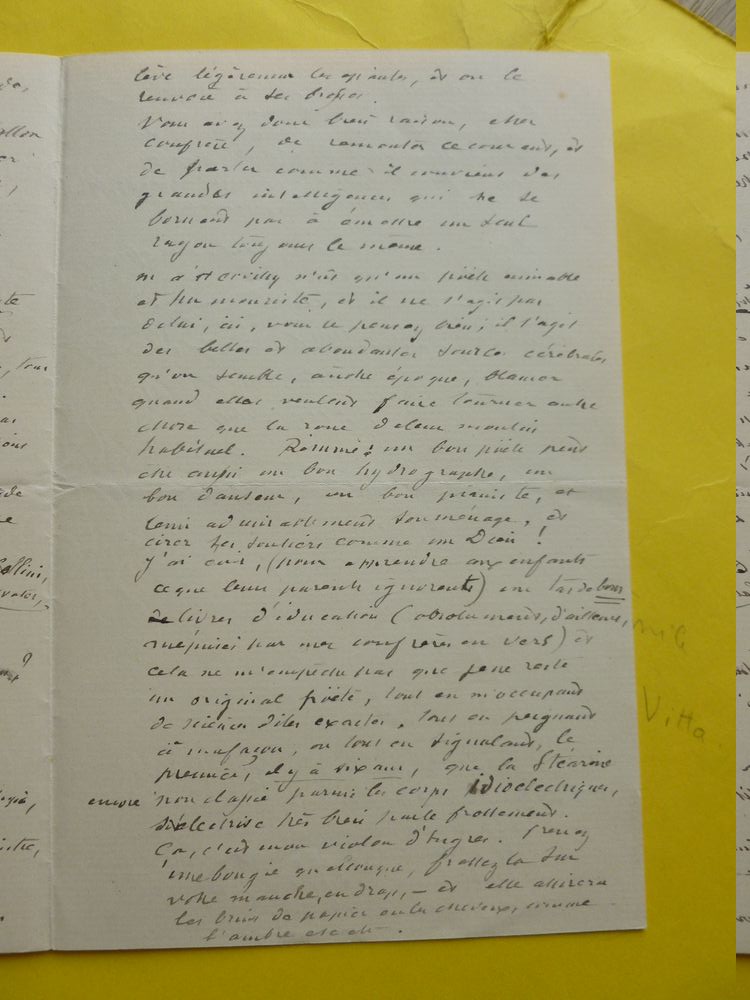 lève légèrement les épaules, et on le
renvoie à ses bottes.
Vous avez donc bien raison, cher
confrère, de remonter ce courant, et
de parler comme il convient des
grandes intelligences qui ne se
bornent pas à émettre un seul
rayon toujours le même.
M d'Hervilly n'est qu'un poëte aimable
et humouriste, et il ne s'agit pas
de lui, ici, vous le pensez bien ; il s'agit
des belles et abondantes sources cérébrales
qu'on semble, à notre époque, blamer
quand elles veulent faire tourner autre
chose que la roue de leur moulin
habituel. Résumé : un bon poëte peut
être aussi un bon hydrographe, un
bon danseur, un bon pianiste, et
tenir admirablement son ménage, et
cirer ses souliers comme un Dieu !
J'ai écrit, (pour apprendre aux enfants
ce que leurs parents ignorent) un tas de bons
livres d'éducation (absolument, d'ailleurs,
méprisés par mes confrères en vers) et
cela ne m'empêche pas que je ne reste
un original poëte, tout en m'occupant
de sciences dites exactes, tout en peignant
à ma façon, ou tout en signalant, le
premier, il y a dix ans, que la Stéarine
encore non classée parmi les corps idioélectriques,
s'électrise très bien par le frottement.
Ça, c'est mon violon d'Ingres. Prenez
une bougie quelconque, frottez la sur
votre manche, en drap, — et elle attirera
les brins de papier ou les cheveux, comme
l'ambre etc etc.
Vitta.